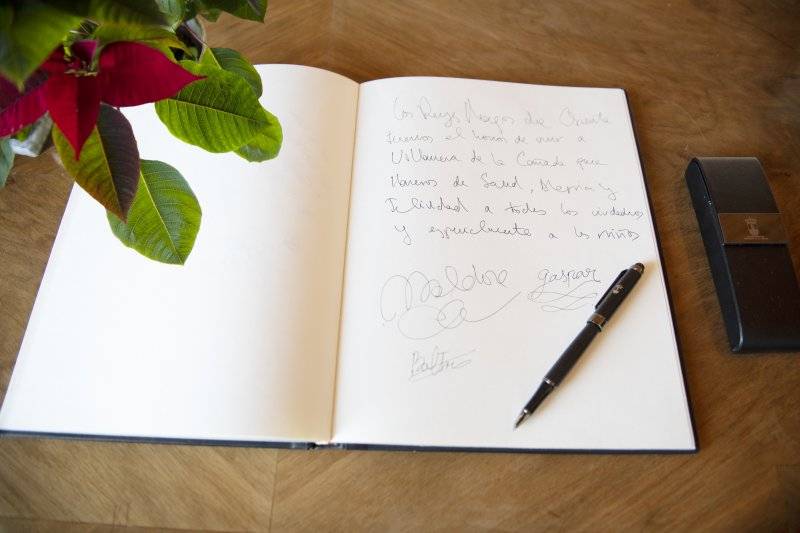 Los Reyes Magos de Oriente
tenemos el honor de venir a
Villanueva de la Cañada para
llenaros de Salud, Alegría y
Felicidad a todos los ciudadanos
y especialmente a los niños
Melchor
gaspar
Baltasar